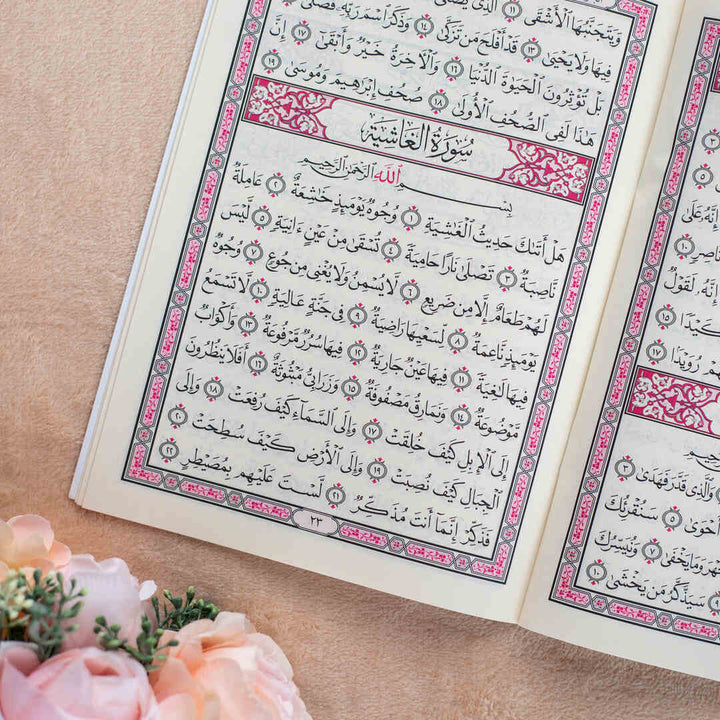 إِنَّهُۥ عَلَىٰ
نَاصِرٖ ١٠
إِنَّهُۥ لَقَوۡلٞ
كَيۡدٗا ١٥
رُوَيۡدَۢا ١٧
ٱلرَّحِيمِ
٣ وَٱلَّذِي قَدَّرَ فَهَدَىٰ
أَحۡوَىٰ ٥ سَنُقۡرِئُكَ
وَمَا يَخۡفَىٰ ٧ وَنُيَسِّرُكَ
سَيَذَّكَّرُ مَن يَخۡشَىٰ ١٠
وَيَتَجَنَّبُهَا ٱلۡأَشۡقَى ١١ ٱلَّذِي يَصۡلَى
فِيهَا وَلَا يَحۡيَىٰ ١٣ قَدۡ أَفۡلَحَ مَن تَزَكَّىٰ ١٤ وَذَكَرَ ٱسۡمَ رَبِّهِۦ فَصَلَّىٰ
بَلۡ تُؤۡثِرُونَ ٱلۡحَيَوٰةَ ٱلدُّنۡيَا ١٦ وَٱلۡأٓخِرَةُ خَيۡرٞ وَأَبۡقَىٰٓ ١٧ إِنَّ
هَٰذَا لَفِي ٱلصُّحُفِ ٱلۡأُولَىٰ ١٨ صُحُفِ إِبۡرَٰهِيمَ وَمُوسَىٰ ١٩
سُورَةُ الغَاشِيَةِ
بِسۡمِ ٱللَّهِ ٱلرَّحۡمَٰنِ ٱلرَّحِيمِ
هَلۡ أَتَىٰكَ حَدِيثُ ٱلۡغَٰشِيَةِ ١ وُجُوهٞ يَوۡمَئِذٍ خَٰشِعَةٌ ٢ عَامِلَةٞ
نَّاصِبَةٞ ٣ تَصۡلَىٰ نَارًا حَامِيَةٗ ٤ تُسۡقَىٰ مِنۡ عَيۡنٍ ءَانِيَةٖ ٥ لَّيۡسَ
لَهُمۡ طَعَامٌ إِلَّا مِن ضَرِيعٖ ٦ لَّا يُسۡمِنُ وَلَا يُغۡنِي مِن جُوعٖ ٧ وُجُوهٞ
يَوۡمَئِذٖ نَّاعِمَةٞ ٨ لِّسَعۡيِهَا رَاضِيَةٞ ٩ فِي جَنَّةٍ عَالِيَةٖ ١٠ لَّا تَسۡمَعُ
فِيهَا لَٰغِيَةٗ ١١ فِيهَا عَيۡنٞ جَارِيَةٞ ١٢ فِيهَا سُرُرٞ مَّرۡفُوعَةٞ ١٣ وَأَكۡوَابٞ
مَّوۡضُوعَةٞ ١٤ وَنَمَارِقُ مَصۡفُوفَةٞ ١٥ وَزَرَابِيُّ مَبۡثُوثَةٌ ١٦ أَفَلَا يَنظُرُونَ
إِلَى ٱلۡإِبِلِ كَيۡفَ خُلِقَتۡ ١٧ وَإِلَى ٱلسَّمَآءِ كَيۡفَ رُفِعَتۡ ١٨ وَإِلَى
ٱلۡجِبَالِ كَيۡفَ نُصِبَتۡ ١٩ وَإِلَى ٱلۡأَرۡضِ كَيۡفَ سُطِحَتۡ ٢٠
فَذَكِّرۡ إِنَّمَآ أَنتَ مُذَكِّرٞ ٢١ لَّسۡتَ عَلَيۡهِم بِمُصَيۡطِرٍ ٢٢
٢٣